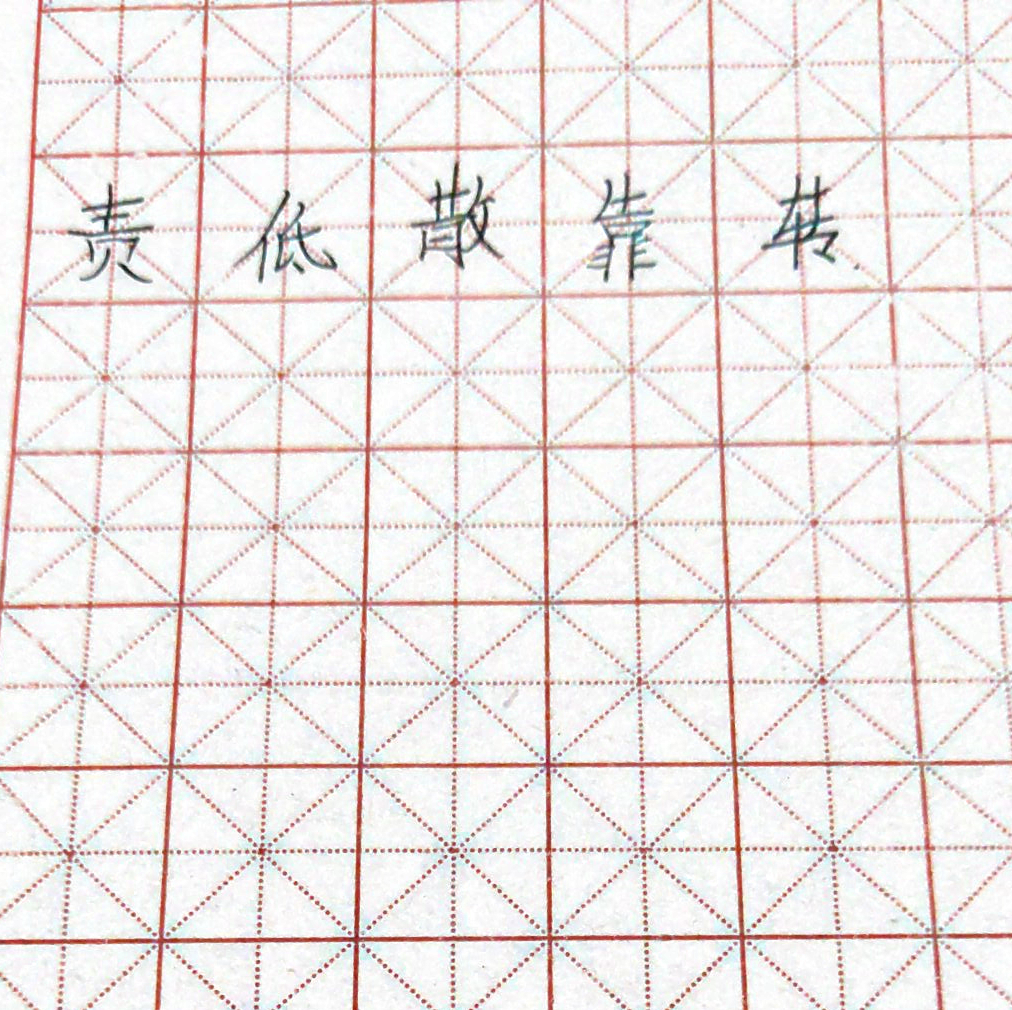 责低散靠转